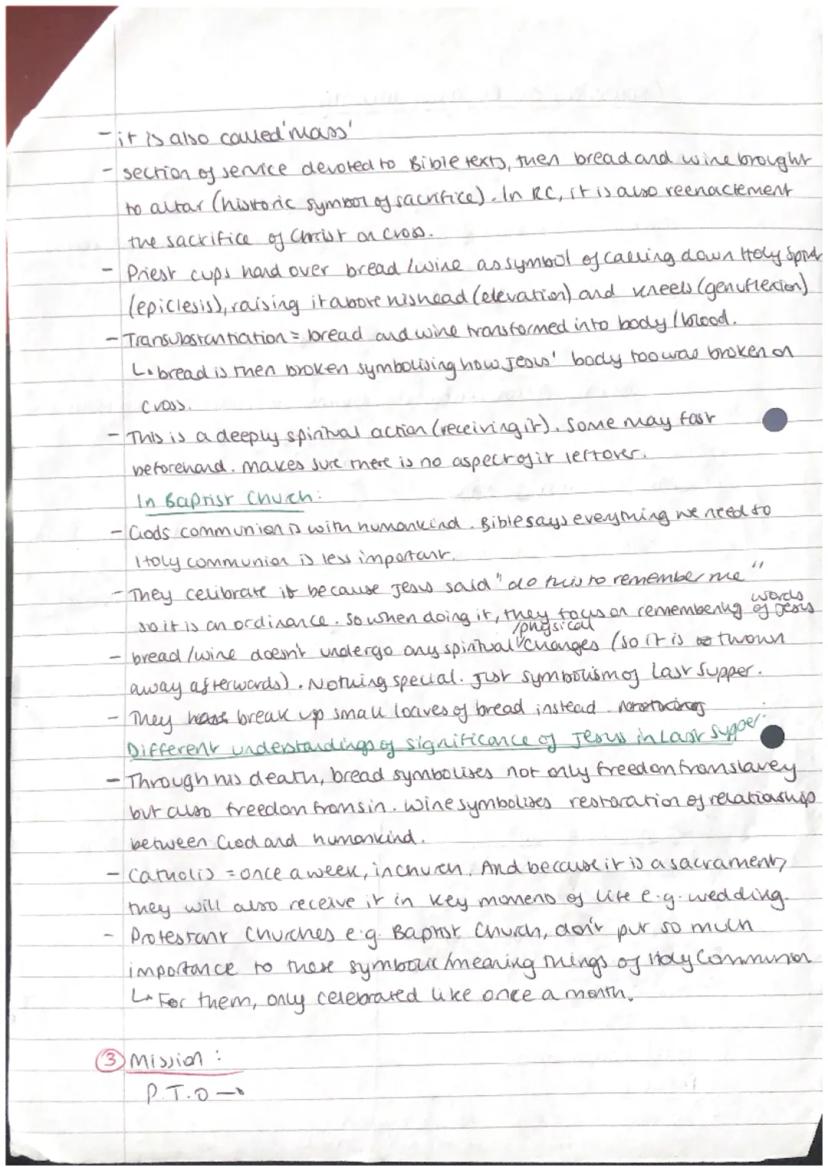 - it is also called 'mass'
- section of service devoted to Bible texts, then bread and wine brought
to altar (historic symbol of sacrifice). In RC, it is also reenactement
the sacrifice of Christ on cross.
- Priest cups hand over bread/wine as symbol of calling down Holy Spirit
(epiclesis), raising it above his head (elevation) and kneels (genuflexion)
- Transubstantiation = bread and wine transformed into body/blood.
↳ bread is then broken symbolising how Jesus' body too was broken on
cross.
- This is a deeply spiritual action (receiving it). Some may fast
beforehand. Makes sure there is no aspect of it leftover.
In Baptist Church:
- Gods communion is with humankind. Bible says everything we need to
Holy communion is less important.
- They celibrate it because Jesus said "do this to remember me"
so it is an ordinance. So when doing it, they focus on remembering words of Jesus
- bread/wine doesn't undergo any spiritual/physical changes (so it is thrown
away afterwards). Nothing special. Just symbolism of Last Supper.
- They break up small loaves of bread instead.
Different understandings of significance of Jesus in Last Supper:
- Through his death, bread symbolises not only freedom from slavery
but also freedom from sin. Wine symbolises restoration of relationship
between God and humankind.
- Catholis = once a week, in church. And because it is a sacrament,
they will also receive it in key moments of life e.g. wedding.
- Protestant Churches e.g. Baptist Church, don't put so much
importance to these symbolic/meaning things of Holy Communion
↳ For them, only celebrated like once a month.
③ Mission:
P.T.O →